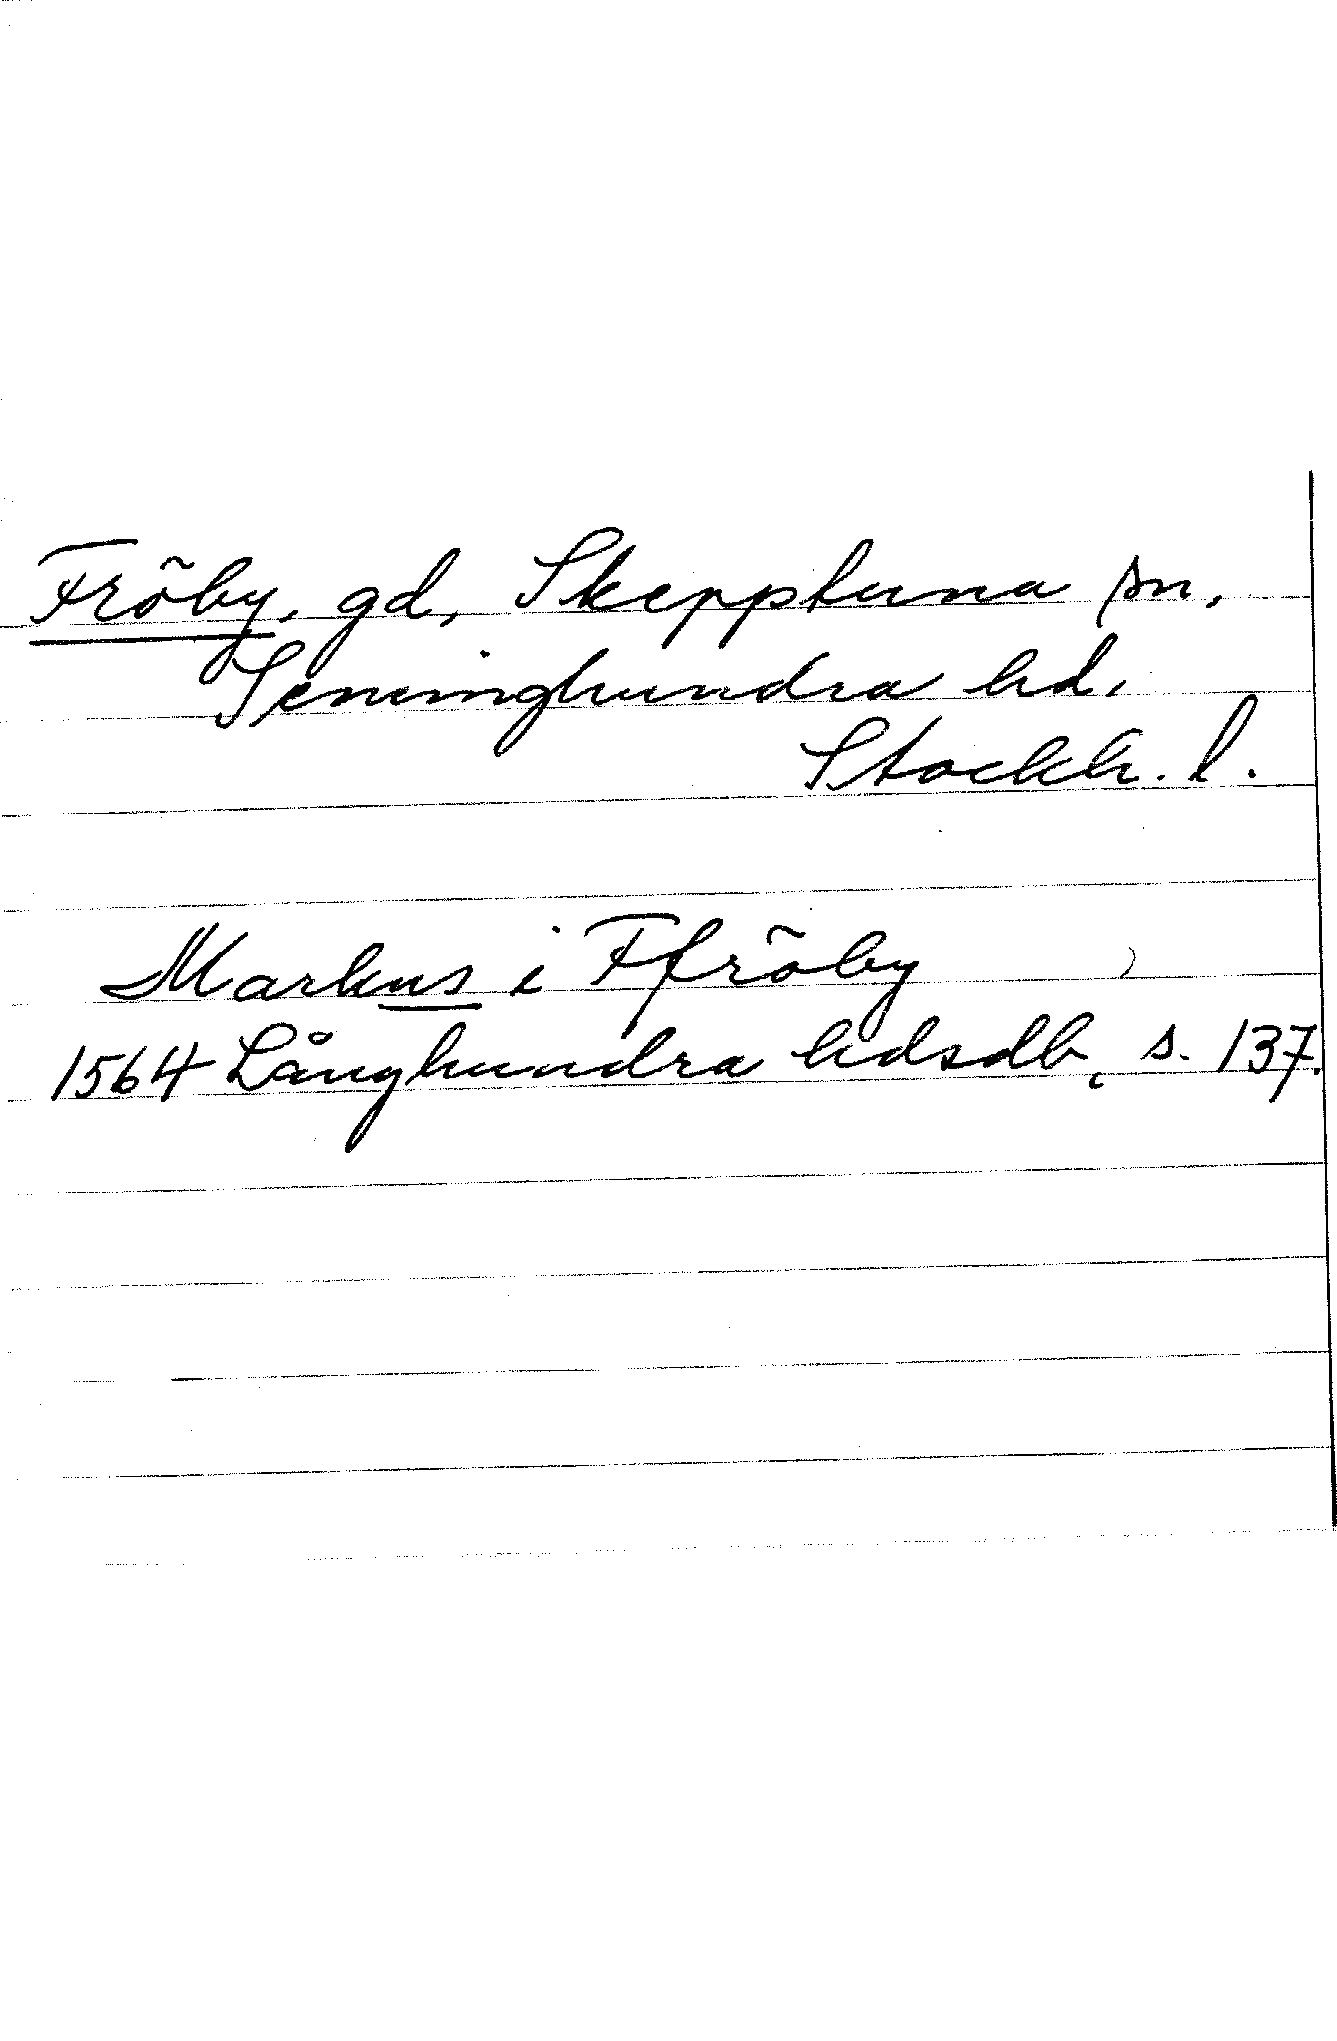 Fröby, gd, Skepptuna sn,
Seminghundra hd.
Stockh. l.
Markus i Ffröby
1564 Långhundra hdsdb, s. 137.